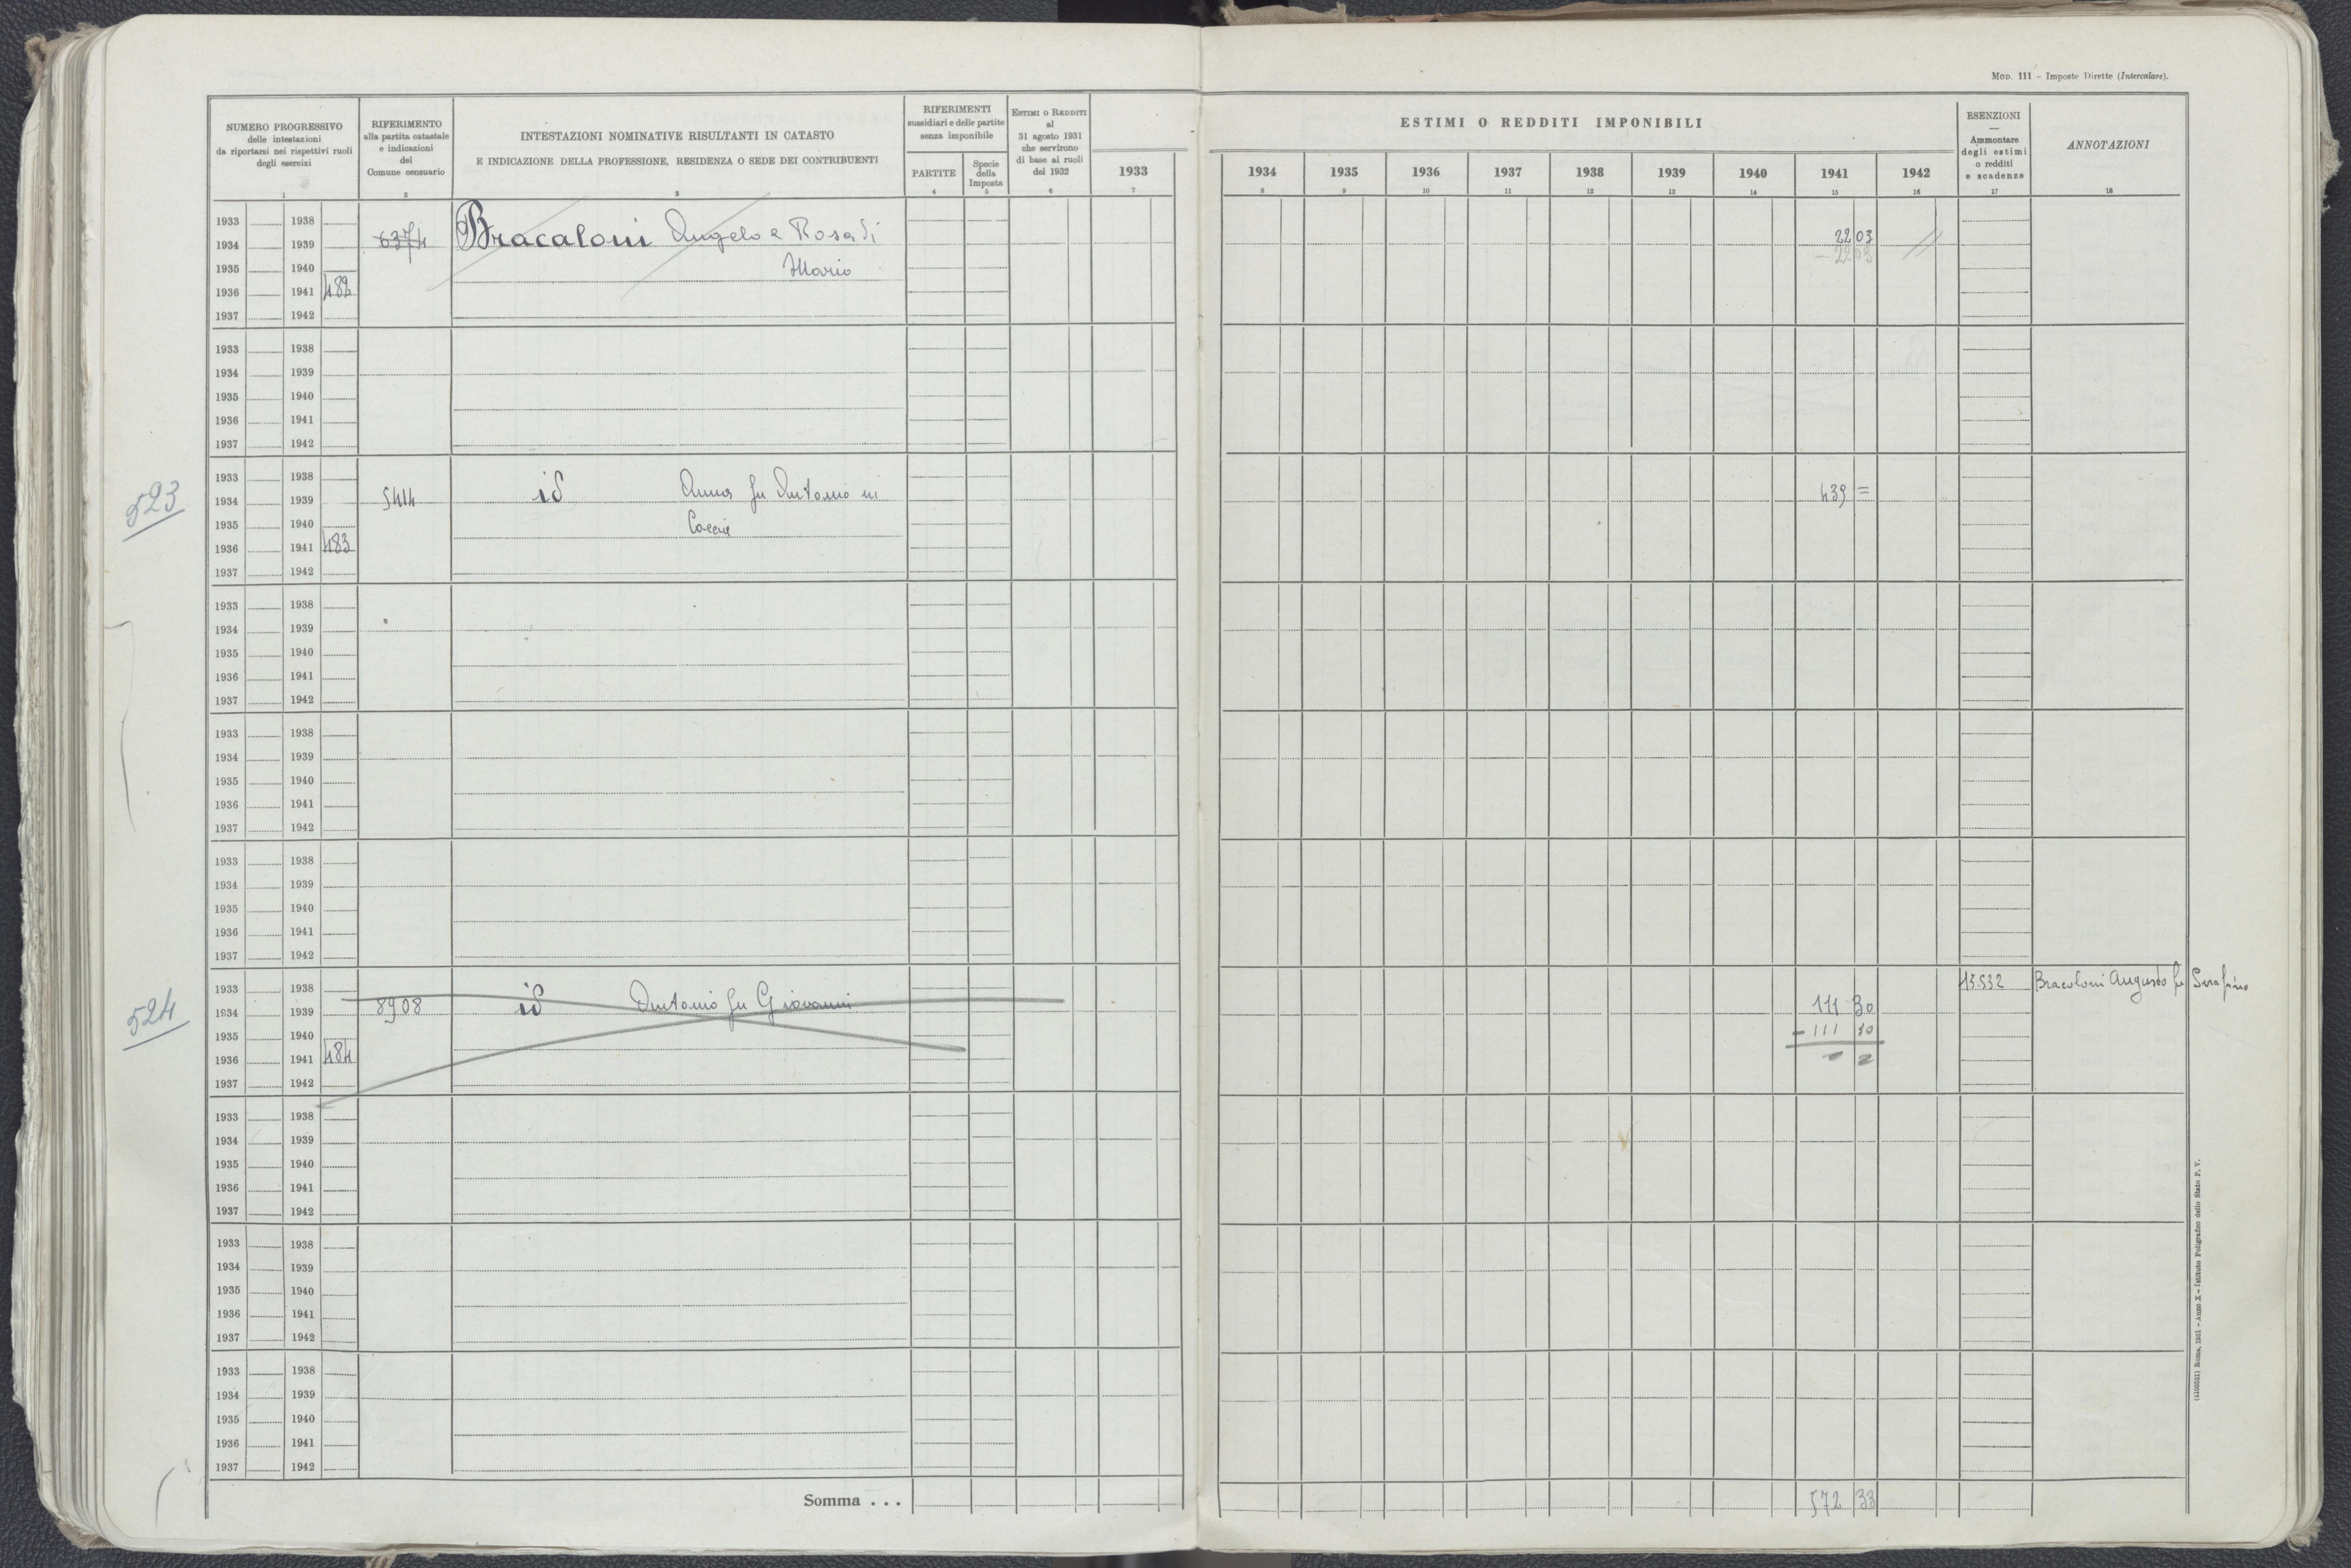 MOD. 111 – Imposte Dirette (Intercalare).
NUMERO PROGRESSIVO
delle intestazioni
da riportarsi nei rispettivi ruoli
degli esercizi
1
RIFERIMENTO
alla partita catastale
e indicazioni
del
Comune censuario
2
INTESTAZIONI NOMINATIVE RISULTANTI IN CATASTO
E INDICAZIONE DELLA PROFESSIONE, RESIDENZA O SEDE DEI CONTRIBUENTI
3
RIFERIMENTI
sussidiari e delle partite
senza imponibile
PARTITE
4
Specie
della
Imposta
5
ESTIMI O REDDITI
al
31 agosto 1931
che servirono
di base ai ruoli
del 1932
6
1933
7
ESTIMI O REDDITI IMPONIBILI
1934 1935 1936 1937 1938 1939 1940 1941 1942
8 9 10 11 12 13 14 15 16
ESENZIONI
—
Ammontare
degli estimi
o redditi
e scadenze
17
ANNOTAZIONI
18
1933 1938
1934 1939 6374 Bracaloni Angelo e Rosa di 22 03
1935 1940 Mario – 22 03
1936 1941 482
1937 1942
1933 1938
1934 1939
1935 1940
1936 1941
1937 1942
523
1933 1938
1934 1939 5414 id Anna fu Antonio in 439 =
1935 1940
1936 1941 483
1937 1942
1933 1938
1934 1939
1935 1940
1936 1941
1937 1942
1933 1938
1934 1939
1935 1940
1936 1941
1937 1942
1933 1938
1934 1939
1935 1940
1936 1941
1937 1942
524
1933 1938 13.532 Bracaloni Augusto fu Serafino
1934 1939 8908 id Antonio fu Giovanni 111 30
1935 1940 – 111
1936 1941 484
1937 1942
1933 1938
1934 1939
1935 1940
1936 1941
1937 1942
1933 1938
1934 1939
1935 1940
1936 1941
1937 1942
1933 1938
1934 1939
1935 1940
1936 1941
1937 1942
Somma . . . 572 33
Roma, 1931 – Anno X – Istituto Poligrafico dello Stato P. V.